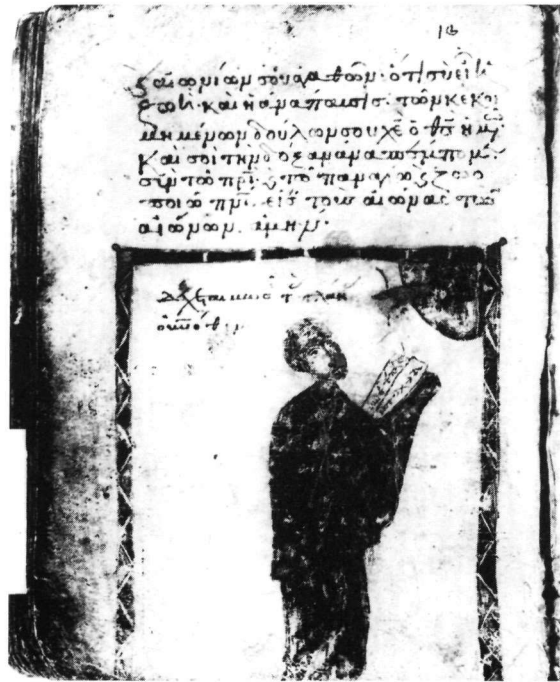 ς αἰωνίων σου ἀγαθῶν· ὅτι σὺ εἶ ἡ
ζωὴ· καὶ ἡ ἀνάπαυσις τῶν κεκοι
μημένων δούλων σου χε ὁ θς ἡμ
καὶ σοὶ τὴν δόξαν ἀναπέμπομ
σὺν τῶ πρι ς τῶ παναγίω ς ζωο
ποιῶ πνι εἰς τοὺς αἰῶνας τῶν
αἰώνων ἀμήν·